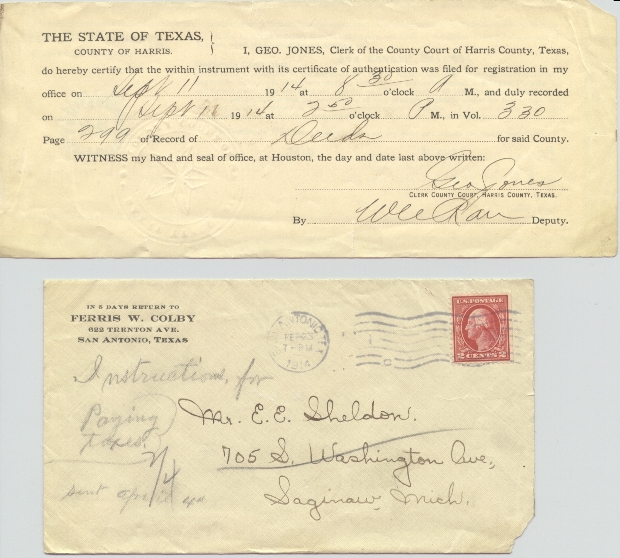 THE STATE OF TEXAS,
COUNTY OF HARRIS.
I, GEO. JONES, Clerk of the County Court of Harris County, Texas,
do hereby certify that the within instrument with its certificate of authentication was filed for registration in my
office on Sept 11 1914 at 8 30 o'clock A M., and duly recorded
on Sept 12 1914 at 2 50 o'clock P M., in Vol. 330
Page 299 of Record of Deeds for said County.
WITNESS my hand and seal of office, at Houston, the day and date last above written:
Geo Jones
CLERK COUNTY COURT, HARRIS COUNTY, TEXAS.
By Deputy.
IN 5 DAYS RETURN TO
FERRIS W. COLBY
622 TRENTON AVE.
SAN ANTONIO, TEXAS
1914
U.S. POSTAGE
2 CENTS 2
Instructions for
Paying
taxes.
2/4
sent April
Mr. E. E. Sheldon.
705 S. Washington Ave,
Saginaw, Mich.